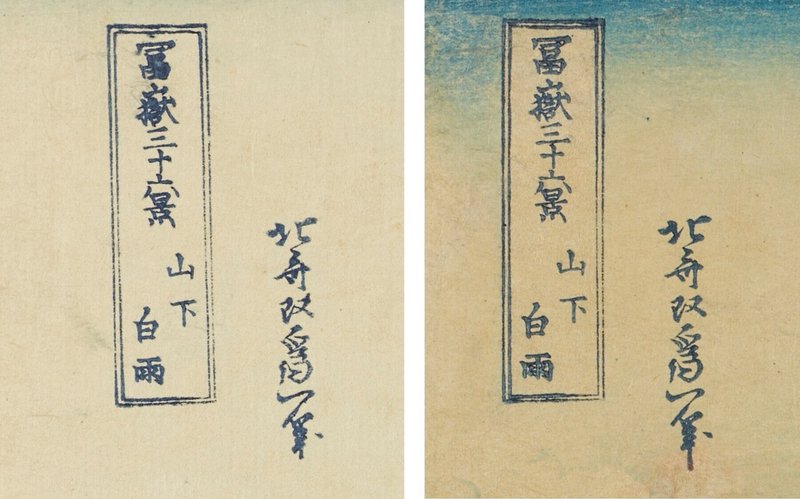 冨嶽三十六景
山下
白雨
北斎改爲一筆
冨嶽三十六景
山下
白雨
北斎改爲一筆